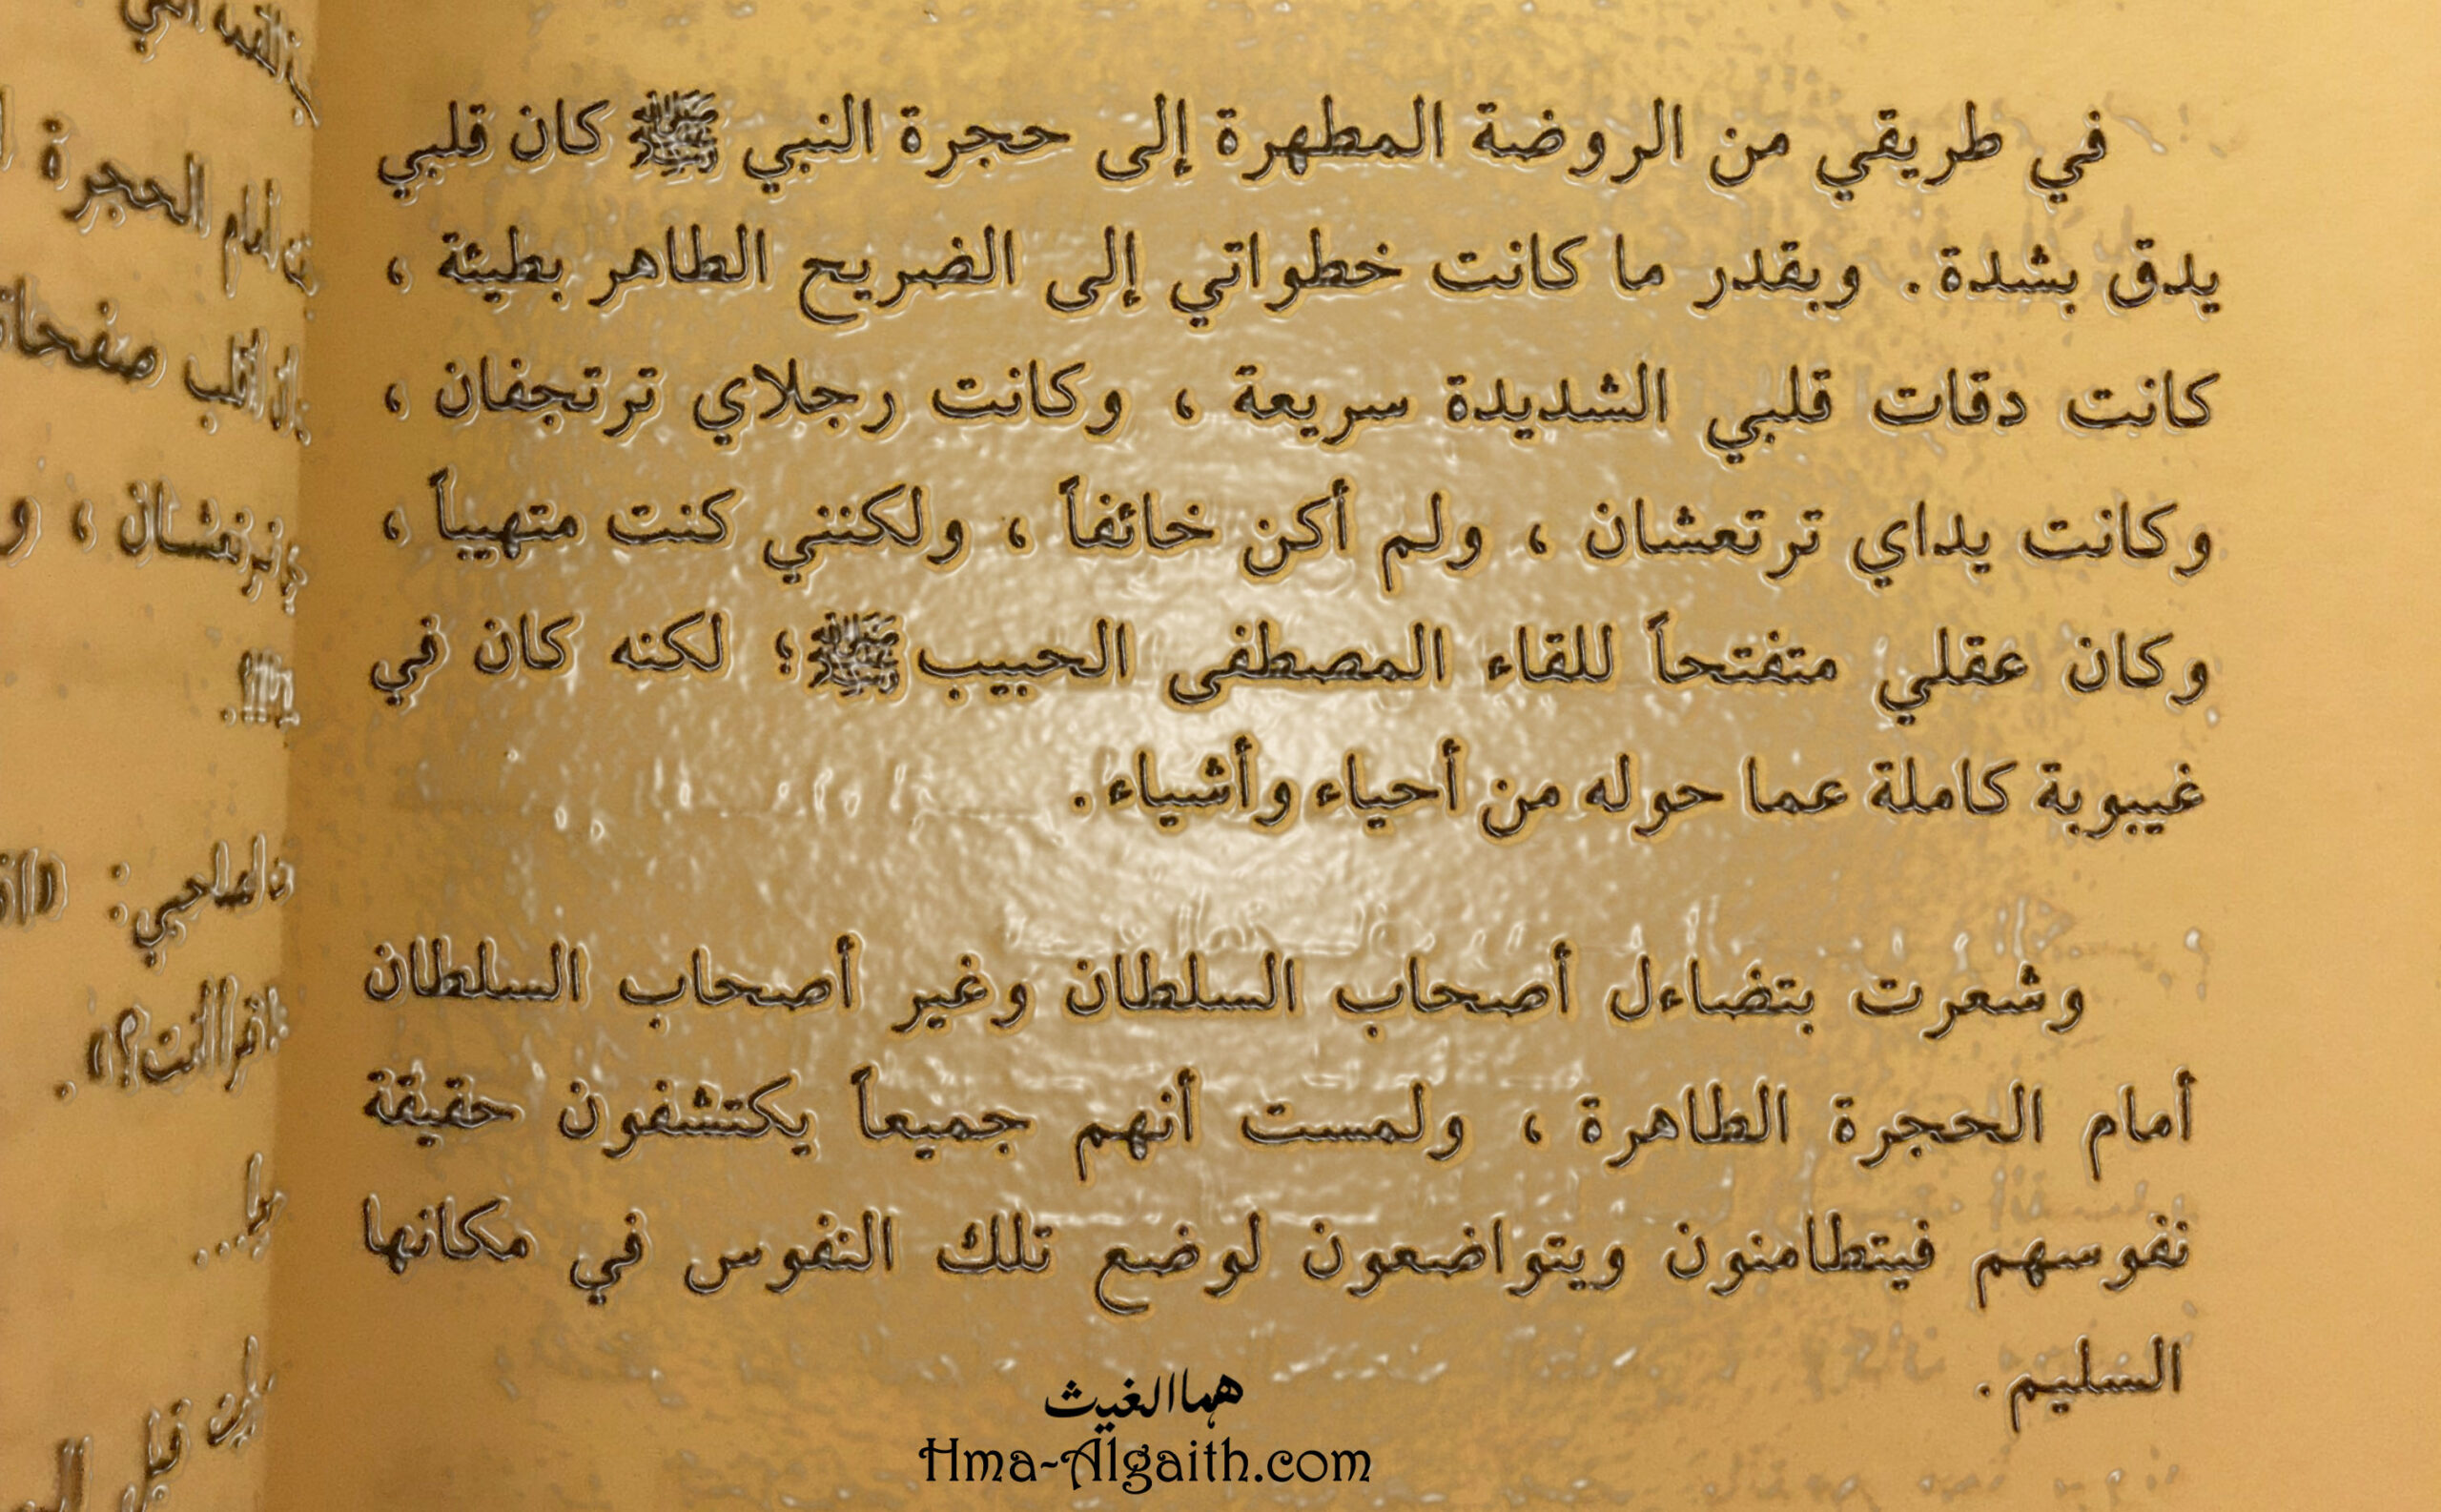 في طريقي من الروضة المطهرة إلى حجرة النبي ﷺ كان قلبي
يدق بشدة. وبقدر ما كانت خطواتي إلى الضريح الطاهر بطيئة ،
كانت دقات قلبي الشديدة سريعة ، وكانت رجلاي ترتجفان ،
وكانت يداي ترتعشان ، ولم أكن خائفاً ، ولكنني كنت متهيباً ،
وكان عقلي متفتحاً للقاء المصطفى الحبيب ﷺ؛ لكنه كان في
غيبوبة كاملة عما حوله من أحياء وأشياء.
وشعرت بتضاءل أصحاب السلطان وغير أصحاب السلطان
أمام الحجرة الطاهرة ، ولمست أنهم جميعاً يكتشفون حقيقة
نفوسهم فيتطامنون ويتواضعون لوضع تلك النفوس في مكانها
السليم.
هما الغيث
Hma-Algaith.com
أمام الحجرة
صفحات